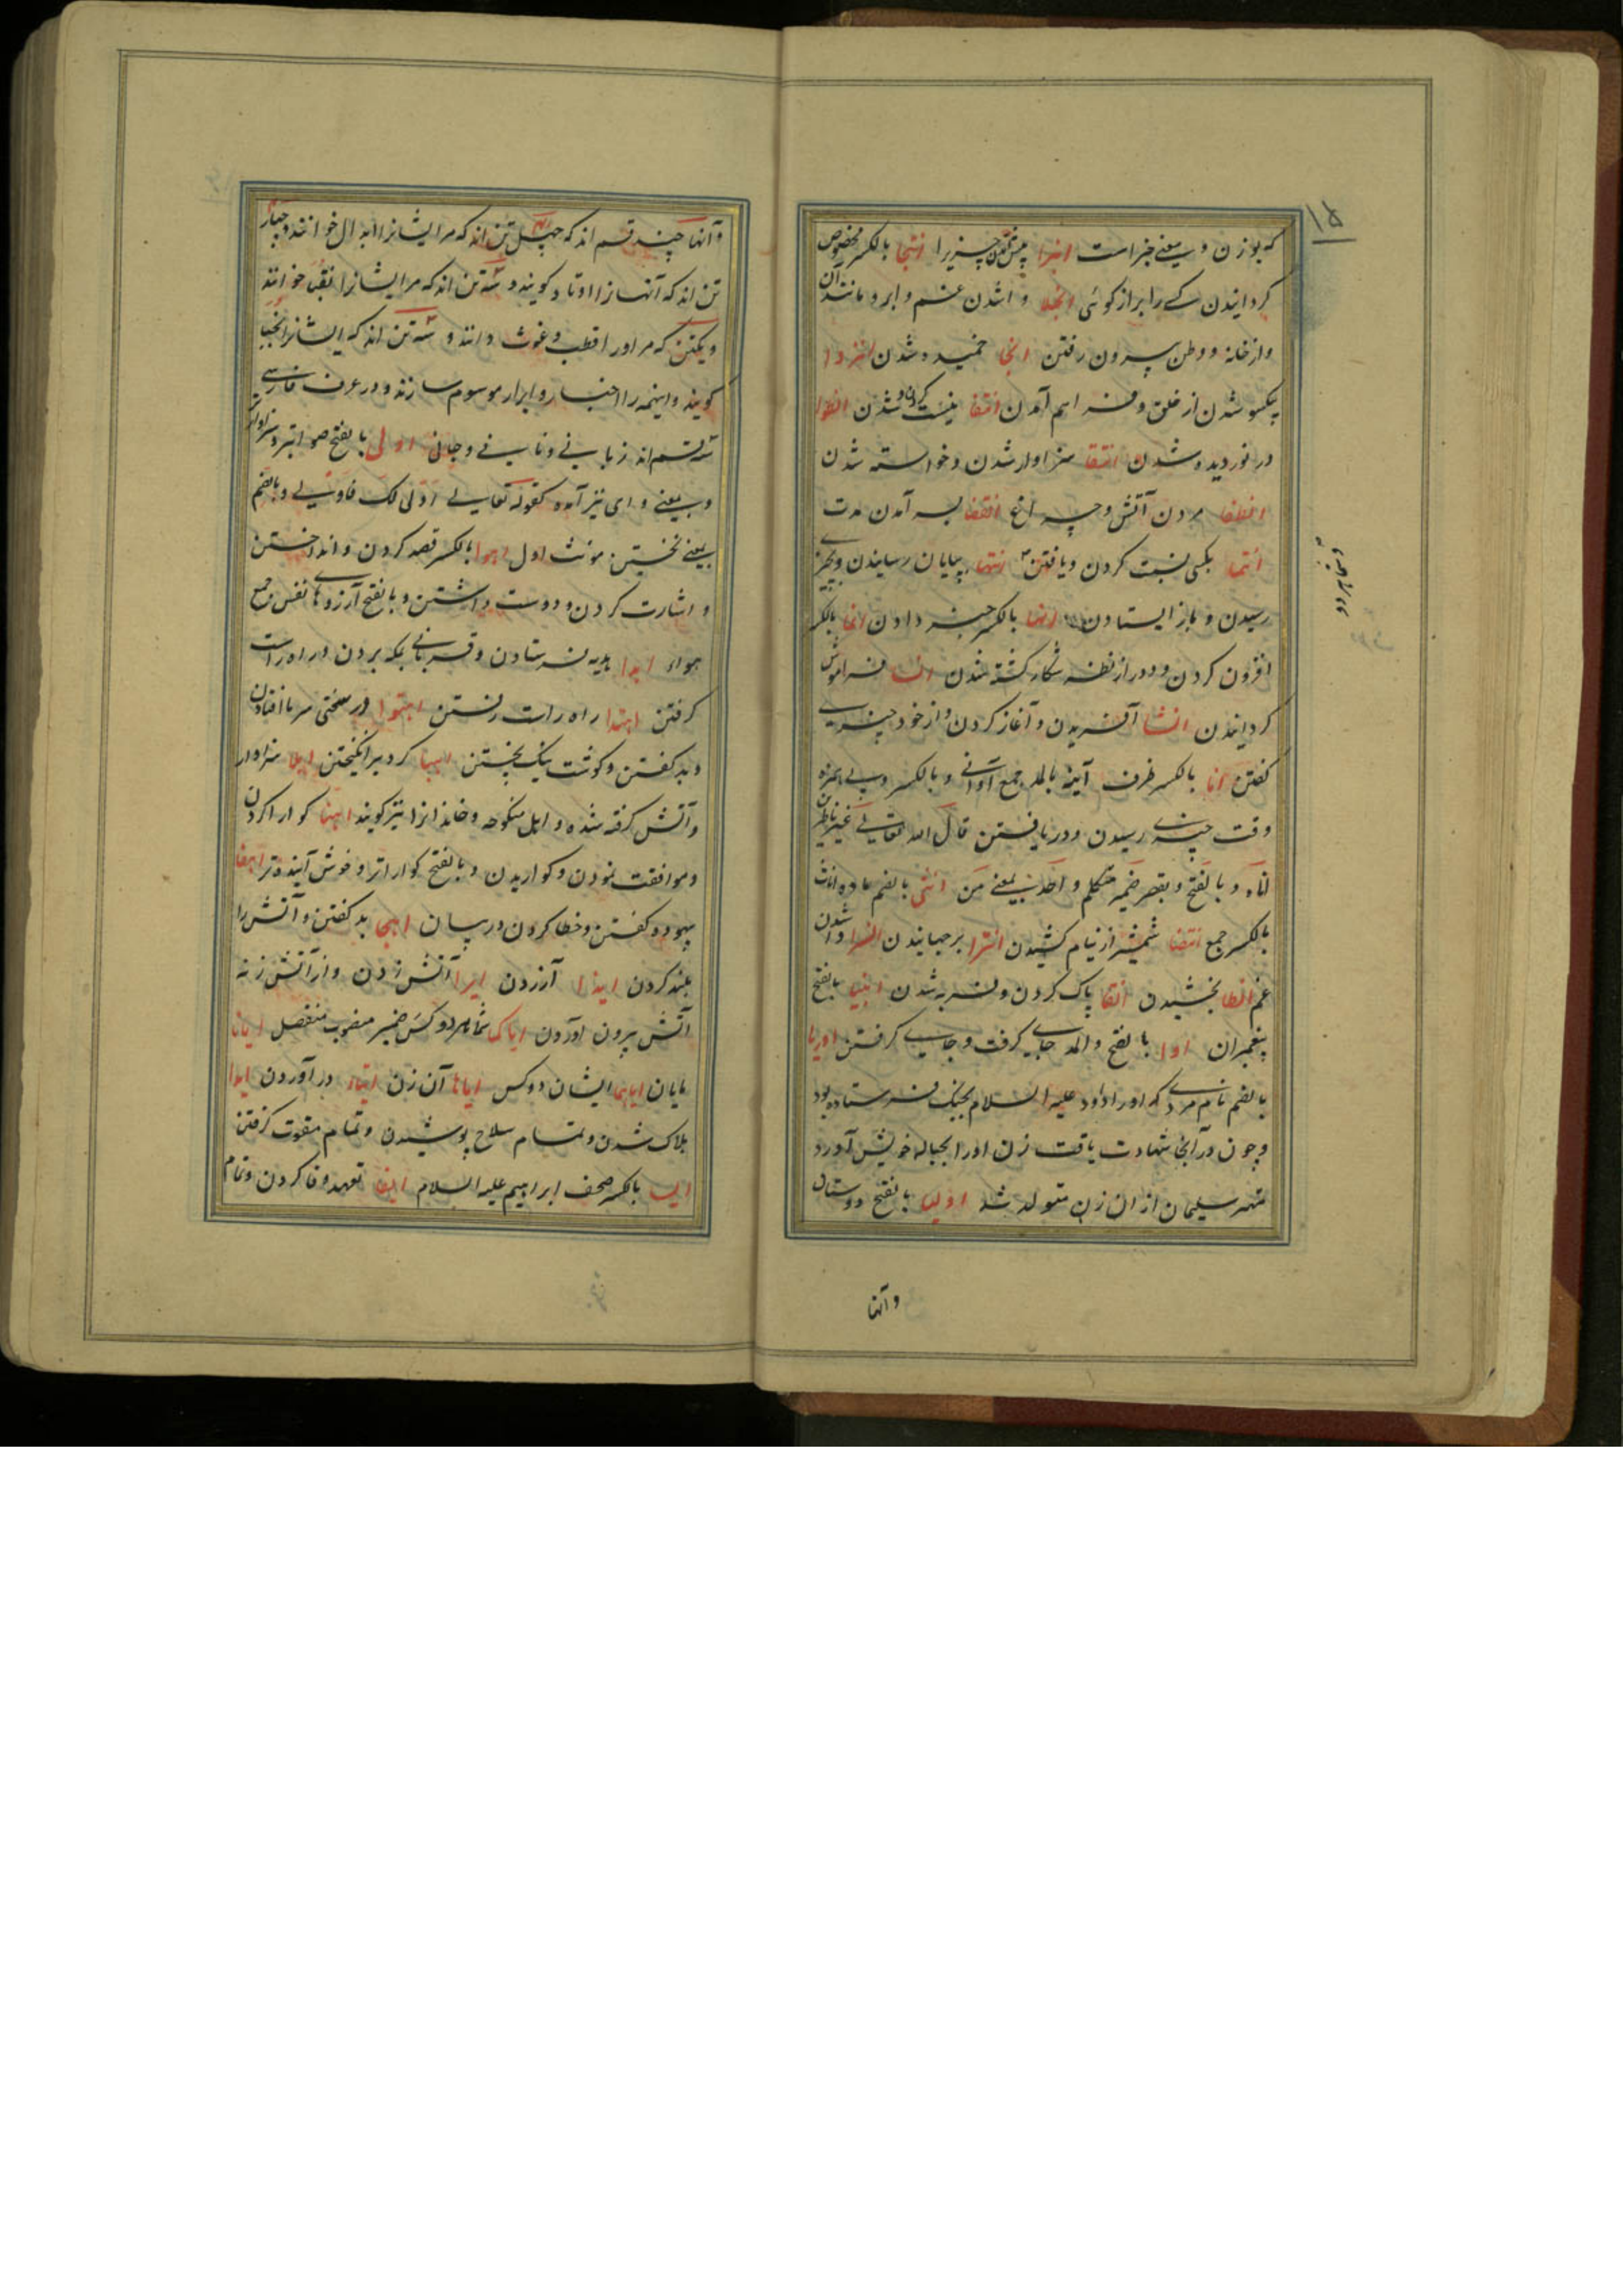 ۱۵
که بوزن و بمعنی جزاست انبرا پیش آمدن چیزیرا انتجا بالکسر مخصوص
گردانیدن کسے را براز گوئی انجلا وا شدن غم و ابر و مانند آن
و از خانه و وطن بیرون رفتن انحنا خمیده شدن انزوا
یکسو شدن از خلق و فراهم آمدن انتفا نیست کردن و شدن انطوا
در نوردیده شدن انبغا سزاوار شدن و خواسته شدن
انطفا مردن آتش و چراغ انقضا بسر آمدن مدت
انتما بکسی نسبت کردن و یافتن انتها بپایان رسانیدن و بچیزے
رسیدن و باز ایستادن انها بالکسر خبر دادن انما بالکسر
افزون کردن و دور از نظر شکار کشته شدن انسا فراموش
گردانیدن انشا آفریدن و آغاز کردن و از خود چیزے
گفتن انا بالکسر ظرف آنیه بالمد جمع اوانی و بالکسر و بے همزه
وقت چیزے رسیدن و دریافتن قال الله تعالی غیر ناظرین
اناه و بالفتح و بقصر ضمیر متکلم واحد بمعنی من انثی بالضم ماده اناث
بالکسر جمع انتضا شمشیر از نیام کشیدن انترا برجهانیدن انسرا وا شدن
غم انطا بخشیدن انقا پاک کردن و فربه شدن انبیا بالفتح
پیغمبران اوا بالفتح والمد جای گرفت و جاے گرفتن اوریا
بالضم نام مردے که اورا داؤد علیه السلام بجنگ فرستاده بود
و چون در آنجا شهادت یافت زن اورا بحباله خویش آورد
مهتر سلیمان از ان زن متولد شد اولیا بالفتح دوستان
وآنها
وآنها چند قسم اند که چهل تن اند که مر ایشانرا ابدال خوانند و چهار
تن اند که آنها را اوتاد گویند و سه تن اند که مر ایشانرا نقبا خوانند
و یکتن که مر اورا قطب و غوث دانند و سه تن اند که ایشانرا نجبا
گویند و اینهمه را اخیار و ابرار موسوم سازند و در عرف فارسی
سه قسم اند زبانی و نانی و جانی اولی بالفتح صوابتر و سزاوارتر
و بمعنی وای نیز آمده کقوله تعالی اولی لک فاولی و بالضم
بمعنی نخستین مونث اول اهوا بالکسر قصد کردن و انداختن
و اشارت کردن و دوست داشتن و بالفتح آرزوهاے نفس جمع
هواء اهدا هدیه فرستادن و قربانی بمکه بردن و راه راست
گرفتن اهتدا راه راست رفتن اهتوا در سختی سرما افتادن
و بد گفتن و گوشت نیک پختن اهبا گرد برانگیختن اهلا سزاوار
و آتش گرفته شده و اهل منکوحه و خانه ازا نیز گویند اهنا گوارا کردن
و موافقت نمودن و گواریدن و بالفتح گواراتر و خوش آینده تر اهفا
بیهوده گفتن و خطا کردن در بیان اهجا بد گفتن و آتش را
بلند کردن ایذا آزردن ایرا آتش زدن و از آتش زنه
آتش بیرون آوردن ایاکما شما هر دو کس ضمیر منصوب منفصل ایانا
مایان ایاهما ایشان دو کس ایاها آن زن ایتاء در آوردن ایدا
هلاک شدن و تمام سلاح پوشیدن و تمام بقوت گرفتن
ایلیا بالکسر صحف ابراهیم علیه السلام ایفا تعهد وفا کردن و تمام